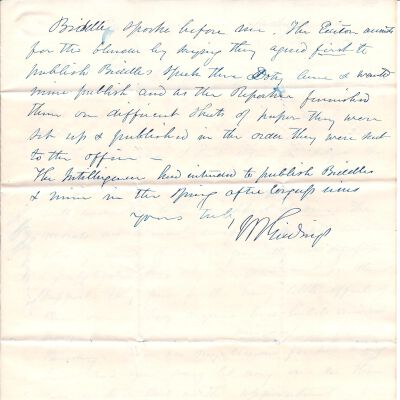 Biddle, spoke before me. The Editor accounts
for the blunder by saying they agreed first to
publish Biddles speech then Doty came & wanted
mine publish and as the Reporter furnished
them on different sheets of paper they were
set up & published in the order they were sent
to the office —
The Intelligencer had intended to publish Biddles
& mine in the Spring after Congress rises
yours truly